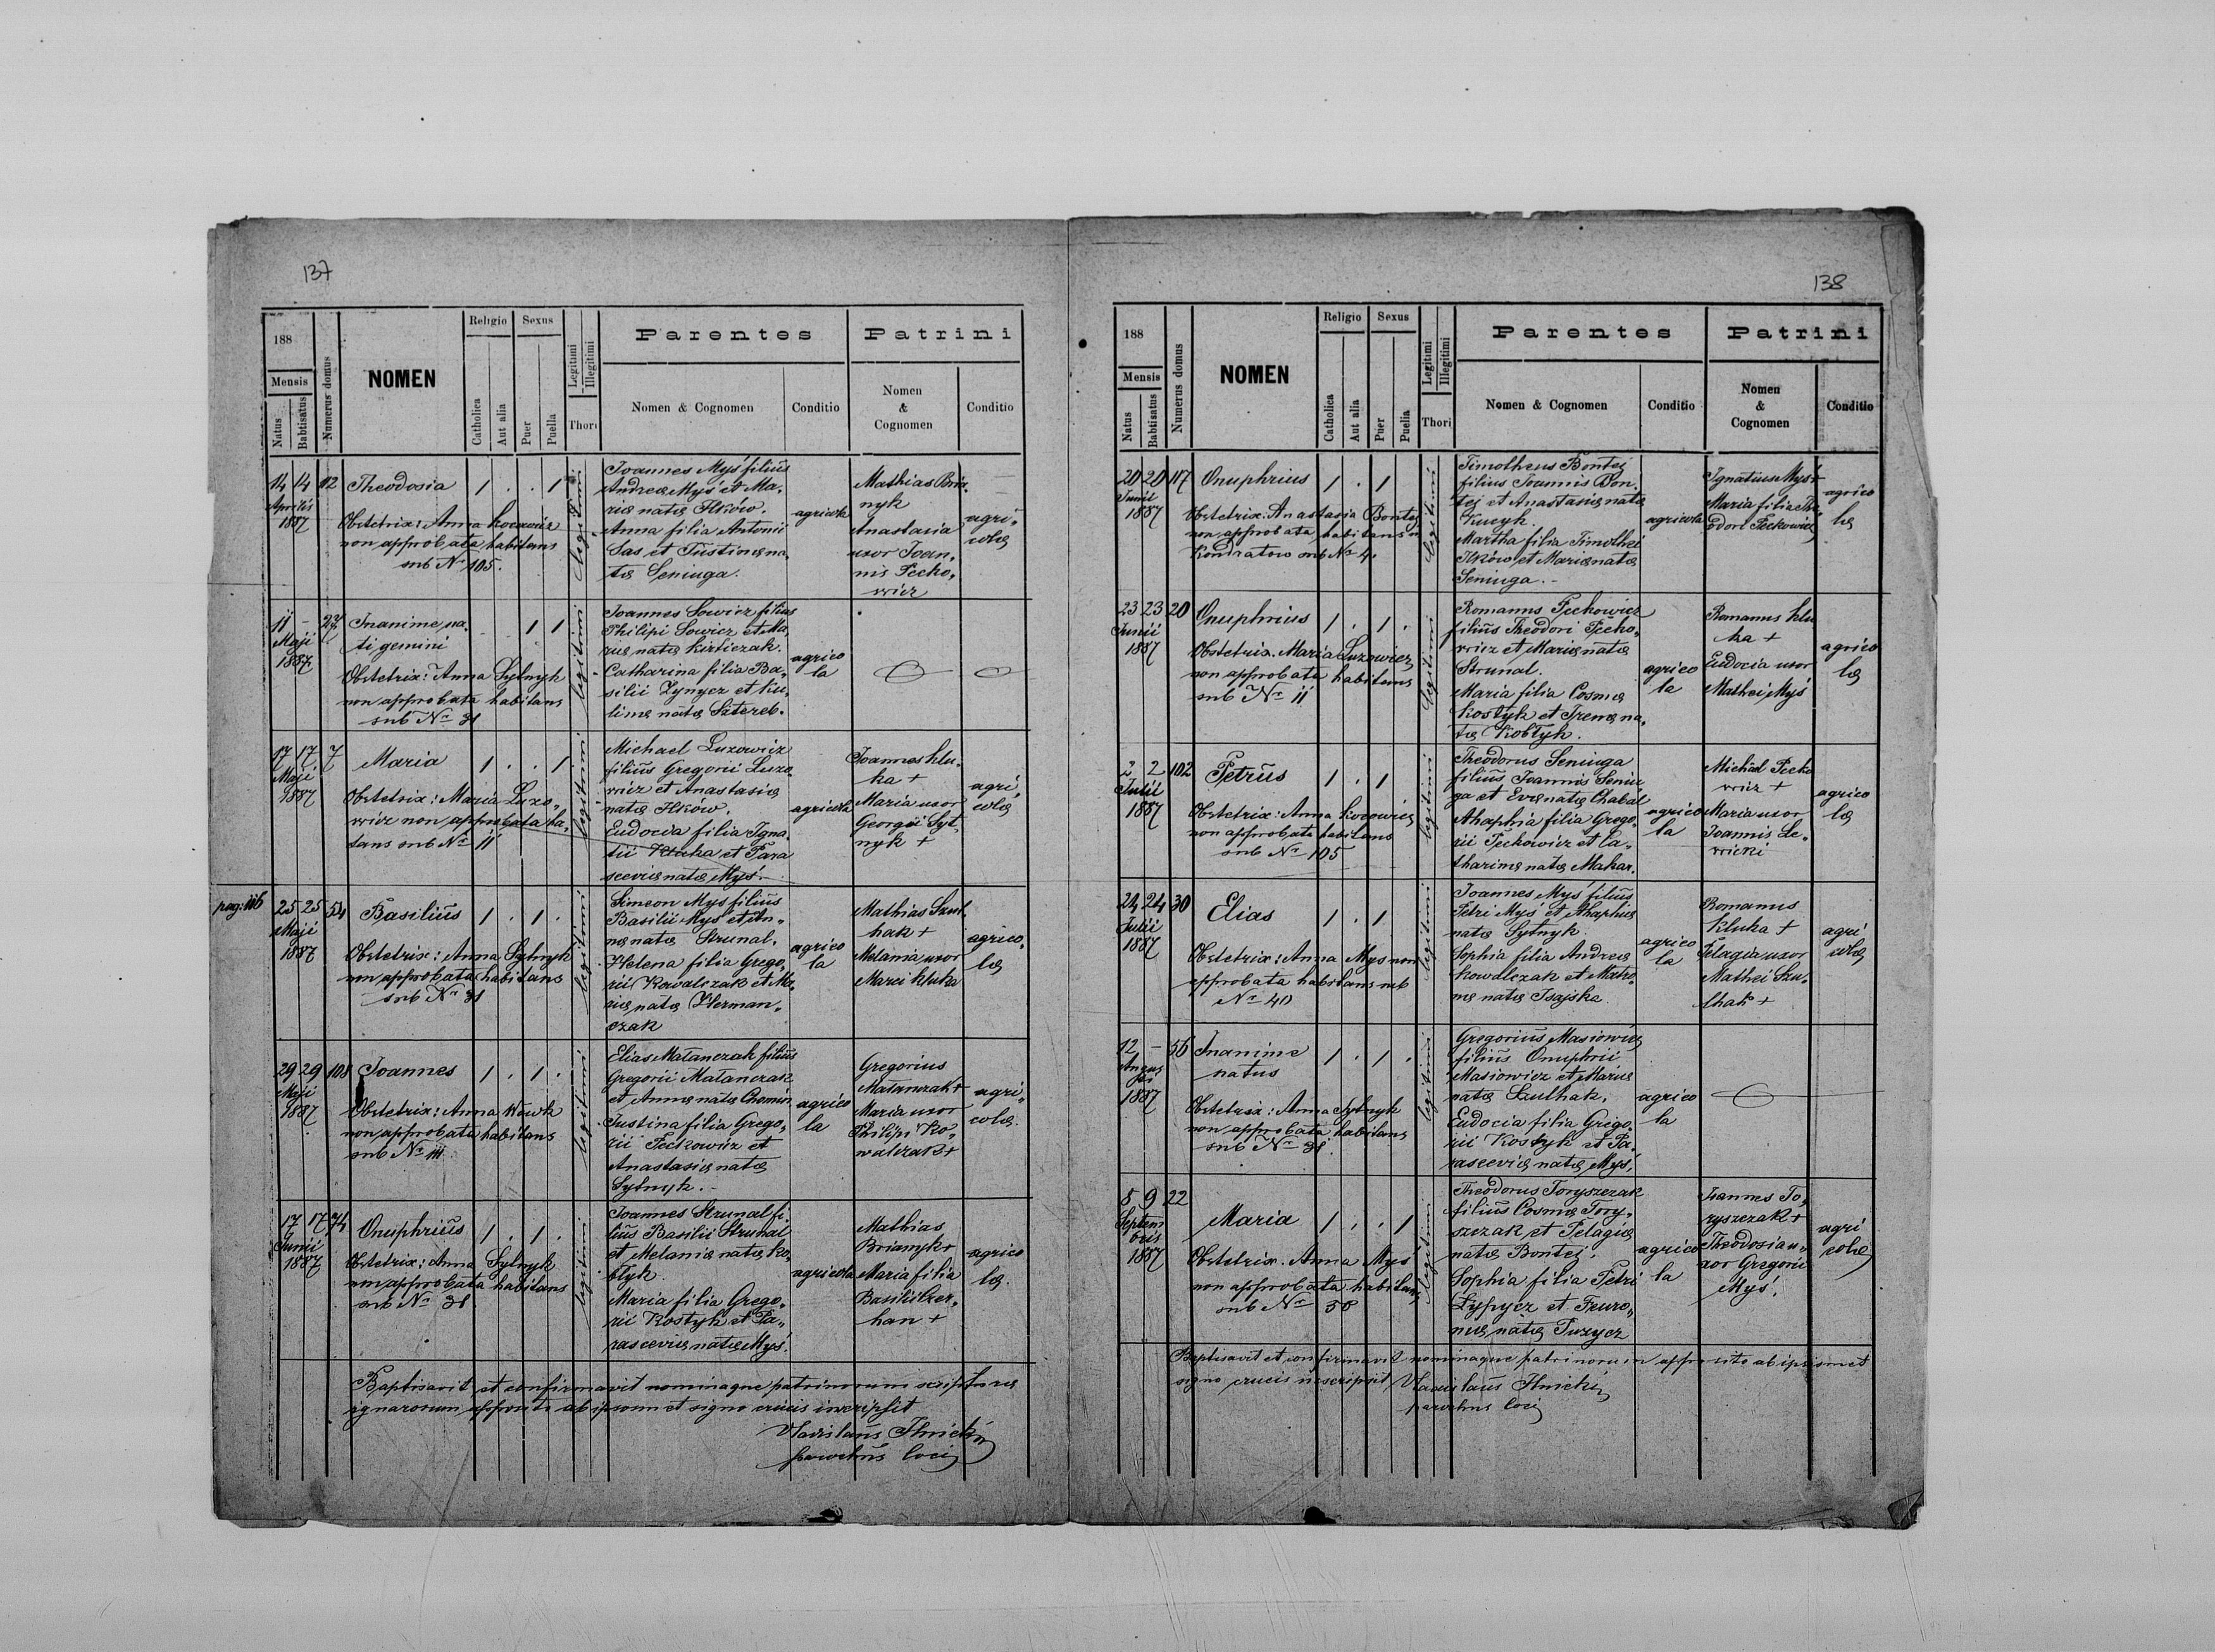 137
188
Mensis
Natus
Babtisatus
Numerus domus
NOMEN
Religio
Catholica
Aut alia
Sexus
Puer
Puella
Legitimi
Illegitimi
Thori
Parentes
Nomen & Cognomen
Conditio
Patrini
Nomen
&
Cognomen
Conditio
14 14 112 Theodosia 1 . . 1
Aprilis
1887
Obstetrix: Anna Kocowicz
non approbata habitans
sub N 105.
legitimi
Joannes Myś filius
Andreæ Myś et Ma„
riæ natæ Ilków.
Anna filia Antonii
Sas et Justinæ na„
tæ Seniuga.
agricola
Mathias Bria„
nyk
Anastasia
uxor Joan„
nis Fecko„
wicz
agri„
colæ
11 -
Maji
1887
Inanime na„
ti gemini
1 1
Obstetrix: Anna Sytnyk
non approbata habitans
sub Nr 31
legitimi
Joannes Sowicz filius
Philipi Sowicz et Ma„
riæ natæ Kirliczak.
Catharina filia Ba„
silii Zynycz et Ku„
limæ natæ Sztereb.
agrico
la
17 17 7 Maria 1 . . 1
Maji
1887
Obstetrix: Maria Luzo„
wicz non approbata ha„
tans sub Nr 11
legitimi
Michael Luzowicz
filius Gregorii Luzo„
wicz et Anastasiæ
natæ Ilków.
Eudocia filia Igna„
tii Kluka et Para
sceviæ natæ Myś.
agricola
Joannes Klu„
ka +
Maria uxor
Georgii Syt„
nyk +
agri„
colæ
pag: 116
25 25 54 Basilius 1 . 1 .
Maji
1887
Obstetrix: Anna Sytnyk
non approbata habitans
sub Nr 31
legitimi
Simeon Myś filius
Basilii Myś et An„
næ natæ Strunal.
Helena filia Grego„
rii Kowalczak et Ma„
riæ natæ Herman„
czak
agrico
la
Mathias Szul„
hak +
Melania uxor
Marci Kluka
agrico„
læ
29 29 108 Joannes 1 . 1 .
Maji
1887
Obstetrix: Anna Wowk
non approbata habitans
sub Nr 111
legitimi
Elias Matanczak filius
Gregorii Matanczak
et Annæ natæ Chomin
Justina filia Grego„
rii Feckowicz et
Anastasiæ natæ
Sytnyk.
agrico
la
Gregorius
Matanczak +
Maria uxor
Philipi Ko„
walczak +
agri„
colæ.
17 17 74 Onuphrius 1 . 1 .
Junii
1887
Obstetrix: Anna Sytnyk
non approbata habitans
sub Nr 31
legitimi
Joannes Strunal fi
lius Basilii Strunal
et Melaniæ natæ Ko„
btyk.
Maria filia Grego„
rii Kostyk et Pa„
rasceviæ natæ Myś.
agricola
Mathias
Brianyk +
Maria filia
Basilii Czer„
han +
agrico
læ.
Baptisavit et confirmavit nominaque patrinorum scripturæ
ignarorum apposito ab ipsismet signo crucis inscripsit
Vladislaus Ilnicki
parochus loci
138
188
Mensis
Natus
Babtisatus
Numerus domus
NOMEN
Religio
Catholica
Aut alia
Sexus
Puer
Puella
Legitimi
Illegitimi
Thori
Parentes
Nomen & Cognomen
Conditio
Patrini
Nomen
&
Cognomen
Conditio
20 20 117 Onuphrius 1 . 1
Junii
1887
Obstetrix: Anastasia Bontej
non approbata habitans in
Kondratow sub Nr 4.
legitimi
Timotheus Bontej
filius Joannis Bon„
tej et Anastasiæ natæ
Kucyk.
Martha filia Timothei
Ilków et Mariæ natæ
Seniuga.
agricola
Ignatius Myś +
Maria filia The
odori Feckowicz
agrico
læ
23 23 20 Onuphrius 1 . 1 .
Junii
1887
Obstetrix. Maria Luzowicz
non approbata habitans
sub Nr 11
legitimi
Romanus Feckowicz
filius Theodori Fecko„
wicz et Mariæ natæ
Strunal.
Maria filia Cosmæ
Kostyk et Irenæ na„
tæ Kobtyk.
agrico
la
Romanus Klu
ka +
Eudocia uxor
Mathei Myś
agrico
læ
2 2 102 Petrus 1 . 1
Julii
1887
Obstetrix: Anna Kocowicz
non approbata habitans
sub Nr 105
legitimi
Theodorus Seniuga
filius Joannis Seniu
ga et Evæ natæ Chabal
Ahaphia filia Grego„
rii Feckowicz et Ca„
tharinæ natæ Makar.
agrico
la
Michael Fecko
wicz +
Maria uxor
Joannis Le„
wicki
agrico
læ
24 24 30 Elias 1 . 1
Julii
1887
Obstetrix: Anna Myś non
approbata habitans sub
Nr 40
legitimi
Joannes Myś filius
Petri Myś et Ahaphiæ
natæ Sytnyk.
Sophia filia Andreæ
Kowalczak et Matro„
næ natæ Isajska.
agrico
la
Romanus
Kluka +
Pelagia uxor
Mathei Szu„
lhak +
agri
colæ
12 - 56 Inanime 1 . 1 .
natus
Augus
ti
1887
Obstetrix: Anna Sytnyk
non approbata habitans
sub Nr 31.
legitimi
Gregorius Masiowicz
filius Onuphrii
Masiowicz et Mariæ
natæ Szulhak.
Eudocia filia Grego„
rii Kostyk et Pa„
rasceviæ natæ Myś.
agrico
la
8 9 22
Maria 1 . . 1
Septem
bris
1887
Obstetrix. Anna Myś
non approbata habitans
sub Nr
legitimi
Theodorus Toryszczak
filius Cosmæ Tory„
szczak et Pelagiæ
natæ Bontej.
Sophia filia Petri
Lypycz et Feuro„
niæ natæ Puzycz
agrico
la
Joannes To„
ryszczak +
Theodosia u„
xor Gregorii
Myś.
agri
colæ
Baptisavit et confirmavit nominaque patrinorum apposito ab ipsismet
signo crucis inscripsit Vladislaus Ilnicki
parochus loci